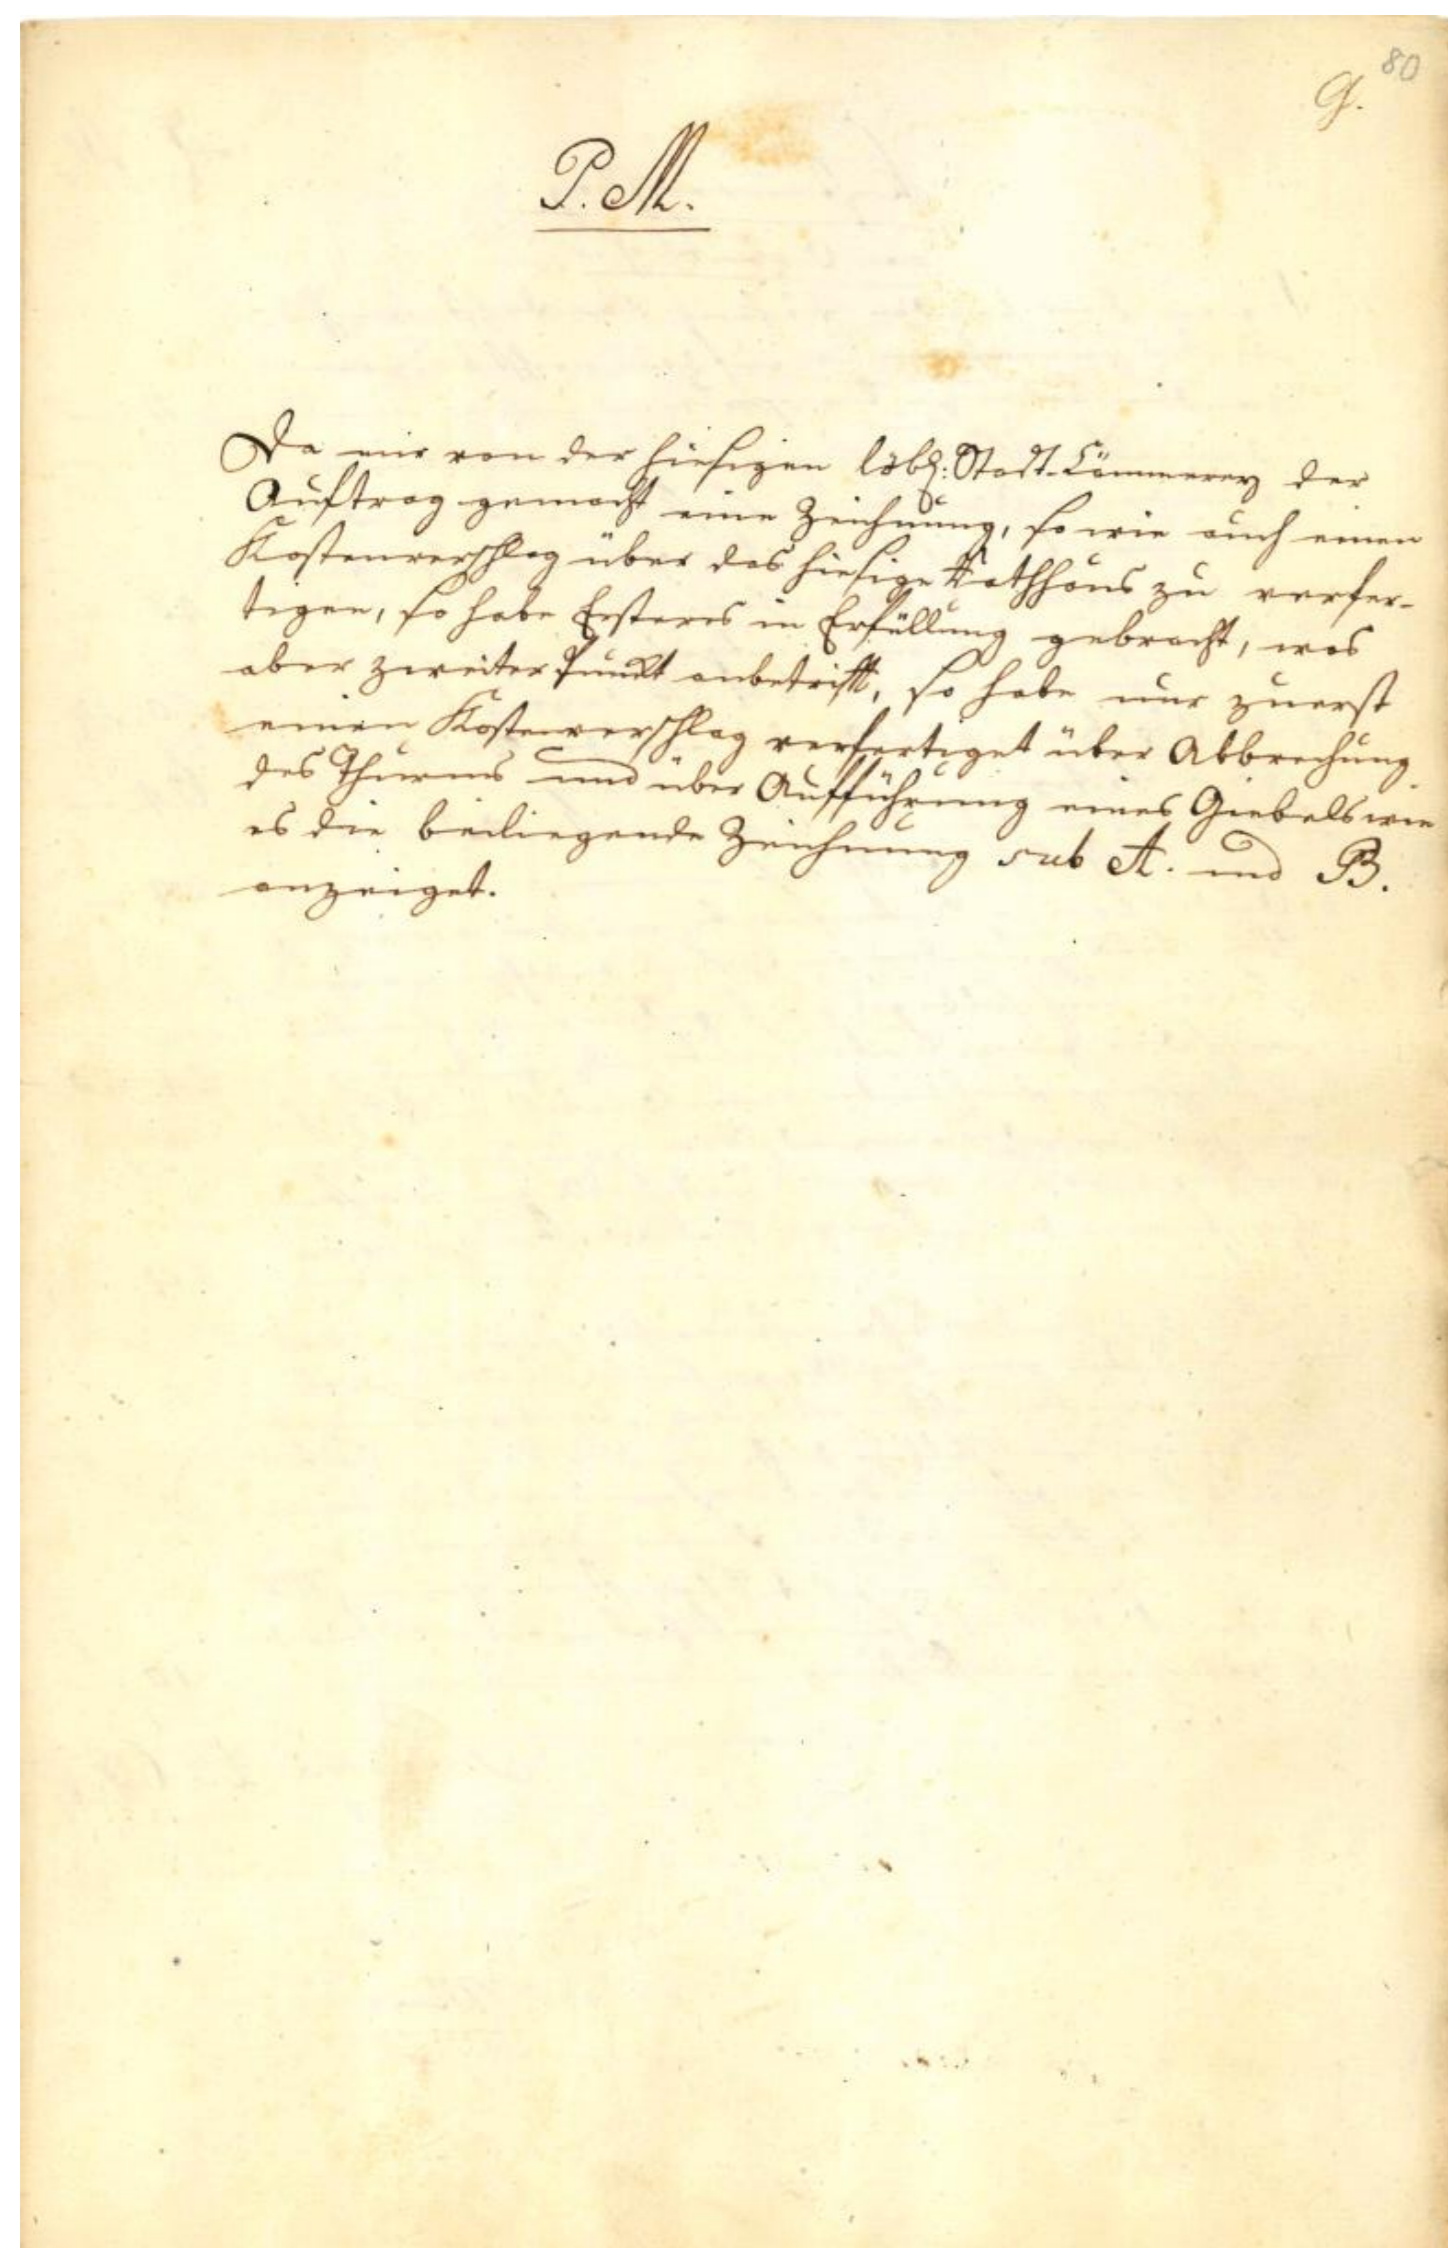 80
G.
P. M.
Da mir von der hiesigen löbl: Stadt-Cämmerey der
Auftrag gemacht eine Zeichnung, so wie auch einen
Kostenverschlag über das hiesige Rathhaus zu verfer-
tigen, so habe Ersteres in Erfüllung gebracht, was
aber zweiter Punckt anbetrifft, so habe nur zuerst
einen Kostenverschlag verfertiget über Abbrechung
des Thurms und über Aufführung eines Giebels wie
es die beiliegende Zeichnung sub A. und B.
anzeiget.